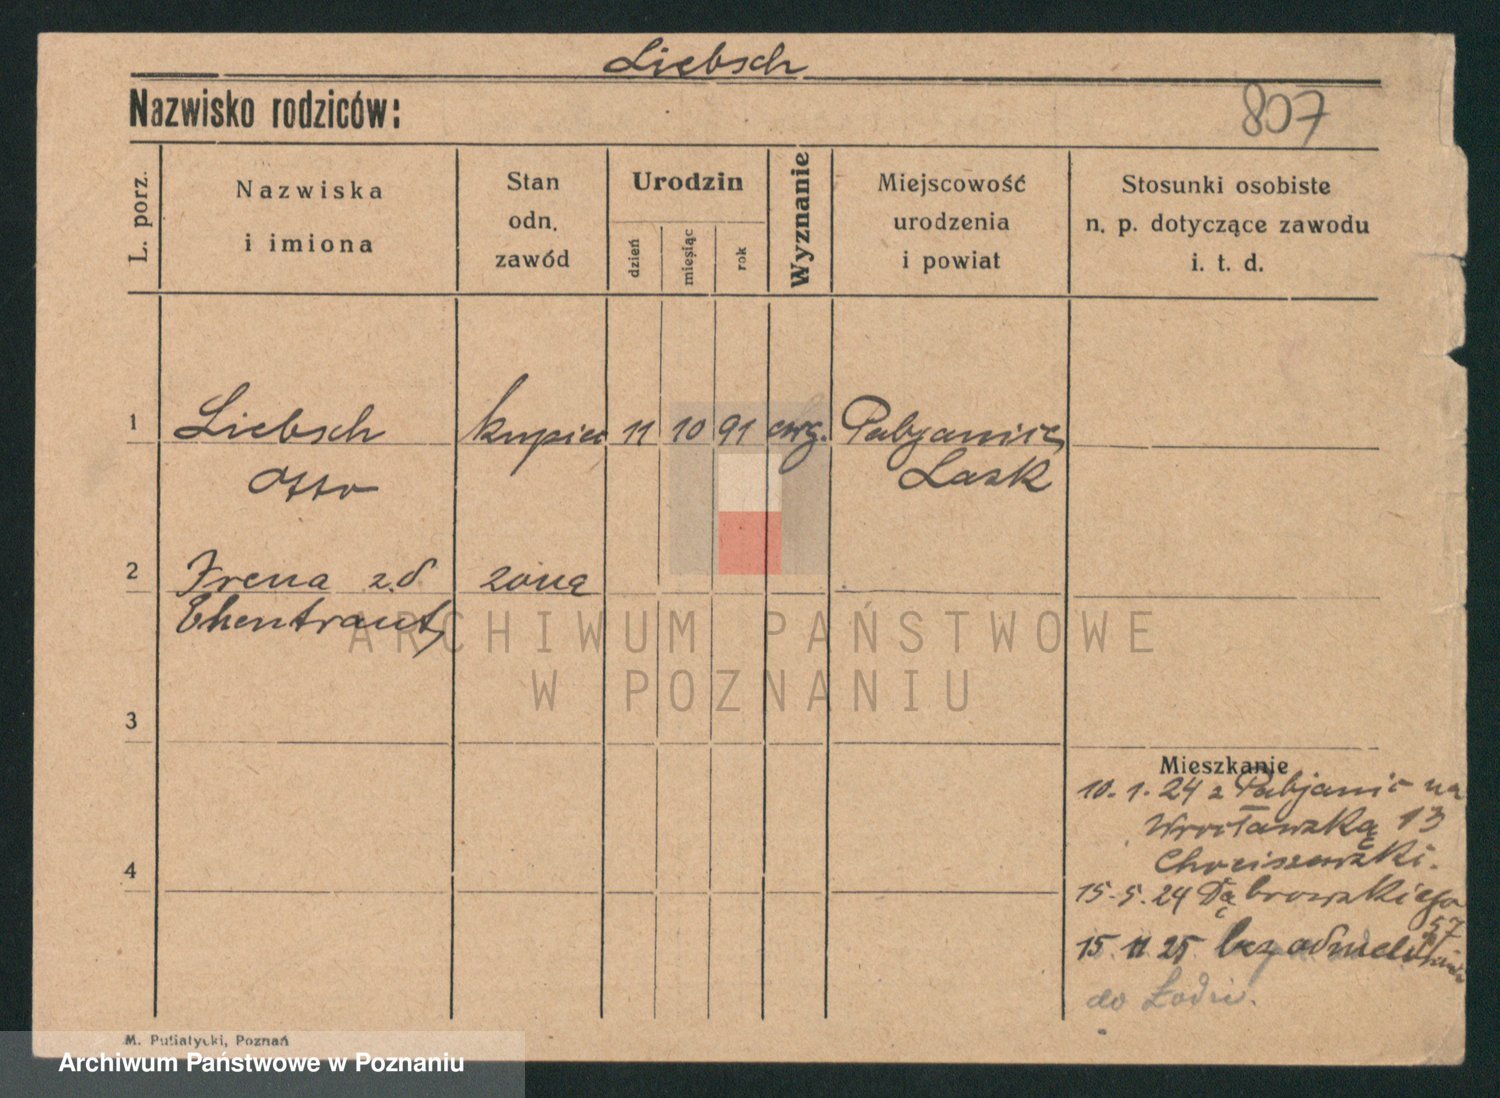 Liebsch
Nazwisko rodziców:
807
L. porz.
Nazwiska
i imiona
Stan
odn.
zawód
Urodzin
dzień
miesiąc
rok
Wyznanie
Miejscowość
urodzenia
i powiat
Stosunki osobiste
n. p. dotyczące zawodu
i. t. d.
1 Liebsch kupiec 11 10 91 ewg. Pabjanice
Otto Lask
2 Irena z.d zona
Ehentraut
3
4
Mieszkanie
10.1.24 z Pabjanic na
Wrocławską 13
Chociszewski.
15.5.24 Dąbrowskiego
57
15.11.25 bez odmeldowania
do Łodzi.
M. Putiatycki, Poznań
ARCHIWUM PAŃSTWOWE
W POZNANIU
Archiwum Państwowe w Poznaniu